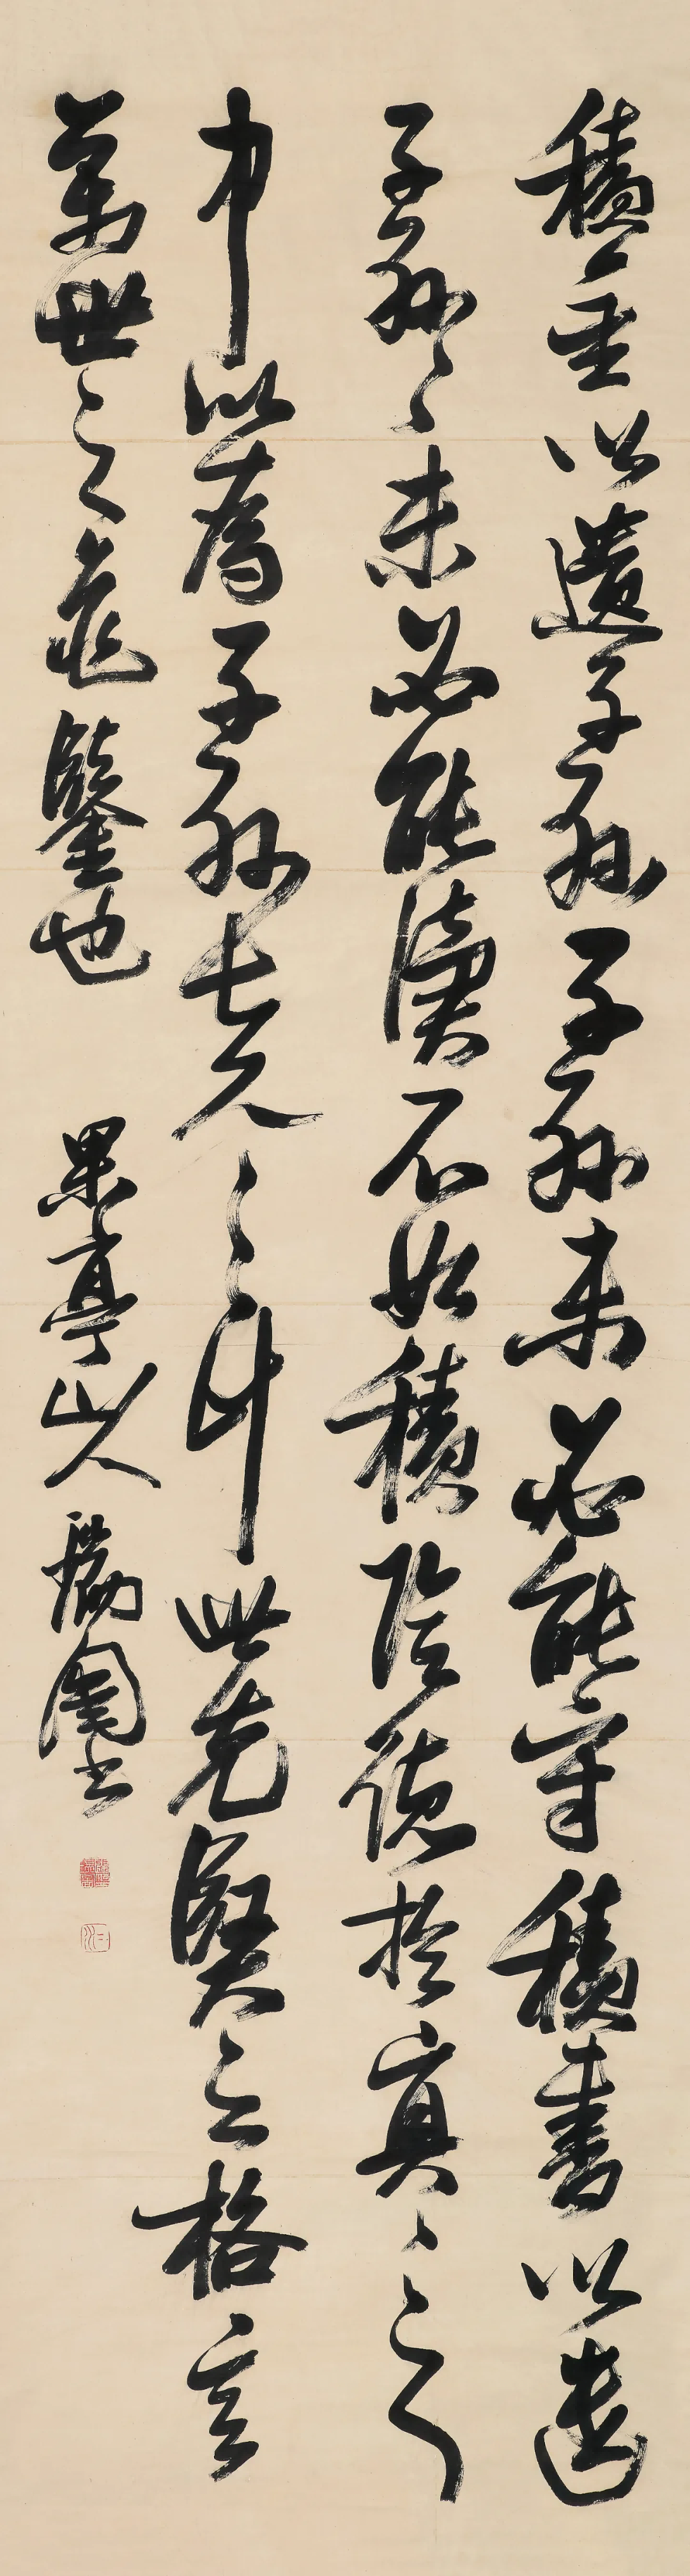 積金以遺子孫子孫未必能守積書以遺
子孫〻未必能讀不如積陰德於冥〻之
中以爲子孫長久之計此先賢之格言
萬世之龜鑒也 果亭山人瑞圖書